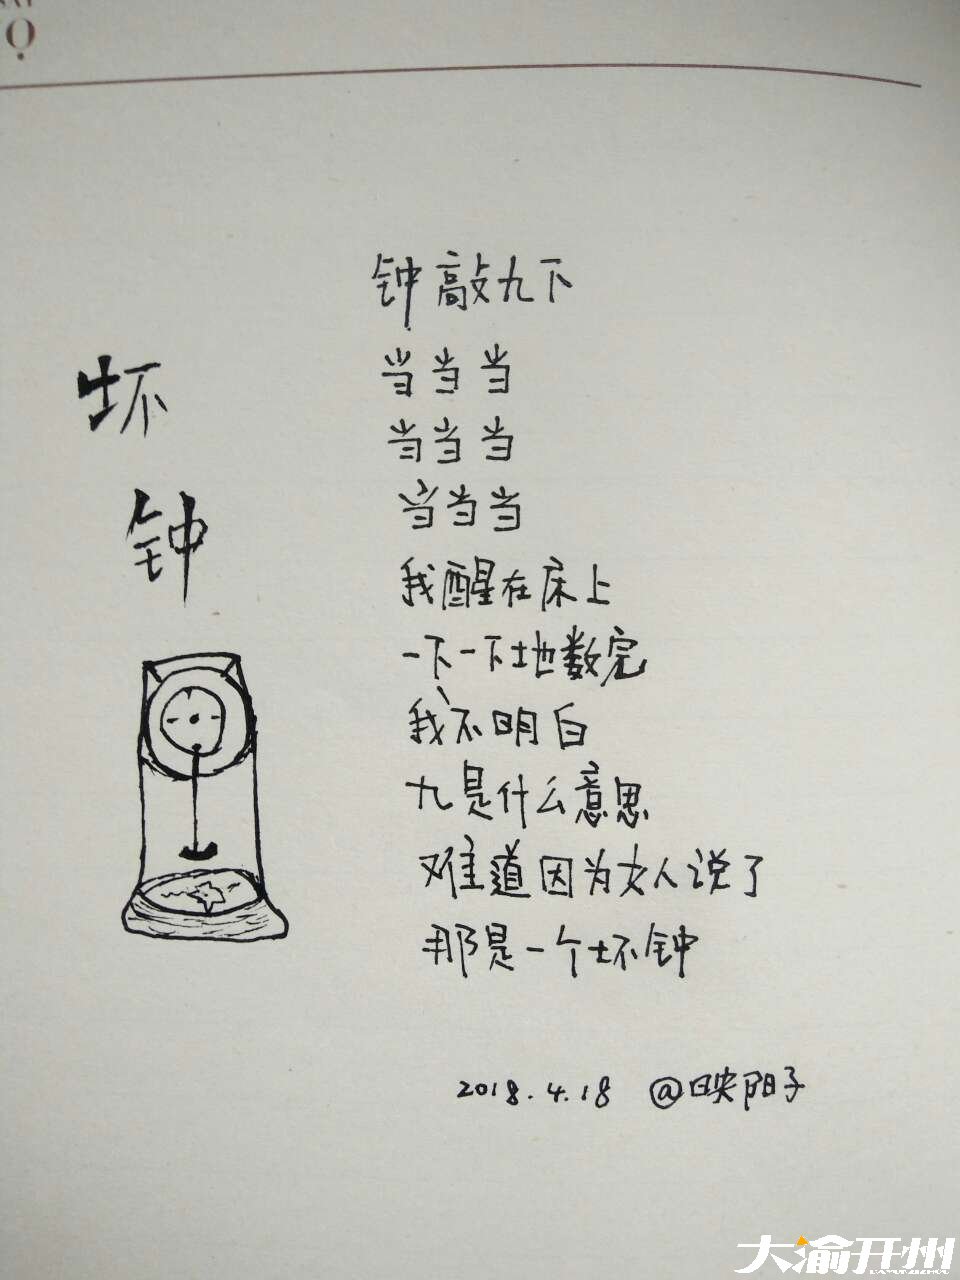 坏
钟
钟敲九下
当当当
当当当
当当当
我醒在床上
一下一下地数完
我不明白
九是什么意思
难道因为女人说了
那是一个坏钟
2018.4.18 @映阳子
大渝开州